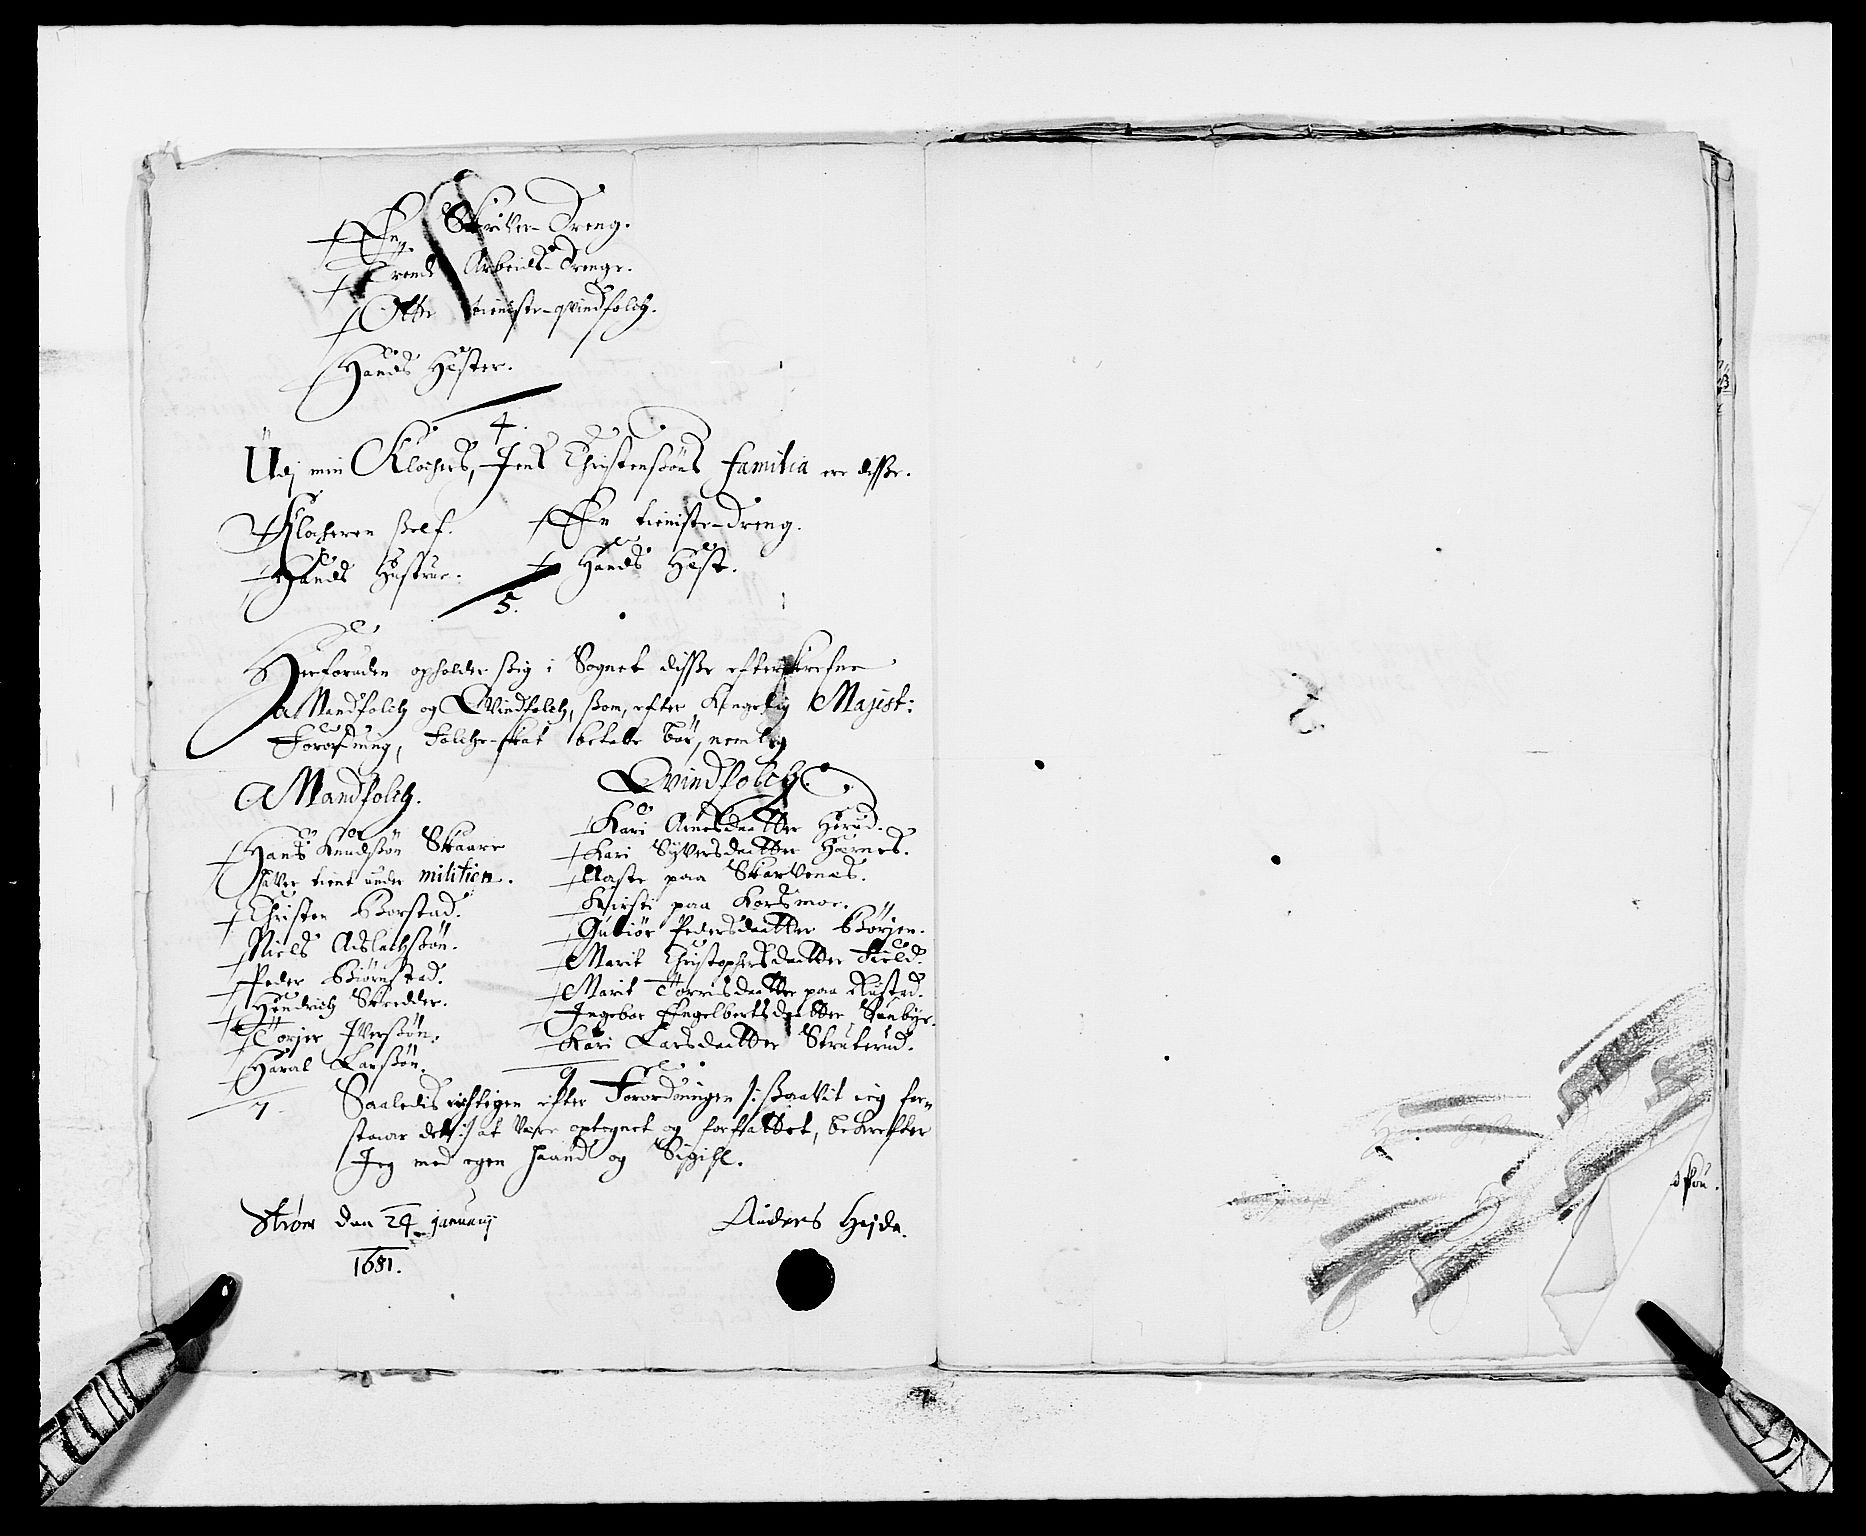 En Skriver-Dreng.
Trende Arbeids-Drenge.
Otte tieniste-qvindfolch.
Hands Hester.
4.
Udj min Klochers, Jens Christensøns familia ere disse.
Klocheren self.
En tieniste-dreng.
Hands Hustrue.
Hands Hest.
5.
Herforuden opholder sig i Sognet disse efterskrefne
Mandfolch og Qvindfolch, som, efter Kongelig Majest:
Forordning, Folche-skat betale bør, nemlig
Mandfolch.
Hans Knudsøn Skaare
hafver tient under militien.
Christen Borstad.
Niels Aslachsøn.
Peder Biørnstad.
Hendrich Skredder.
Torjer Iversøn.
Haral Larsøn.
7.
Qvindfolch.
Kari Arnesdaatter Herud.
Kari Syversdaatter Harnes.
Aaste paa Skarvenes.
Kirsti paa Korsmoe.
Gubiør Pedersdaatter Børjen.
Marit Christophersdaatter Field.
Marit Torrisdaatter paa Rustad.
Ingebor Engelbertsdaatter Sønbye.
Kari Larsdaatter Strukerud.
9
Saaledis richtigen efter Forordningen /: saavit ieg for-
staar det :/ at være optegnet og forfattet, bekrefter
Jeg med egen haand og Sigihl.
Strøm den 24 januarij
1681.
Anders Hejde.